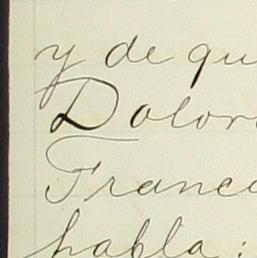 y de qu
Dolor
Franc
habla: